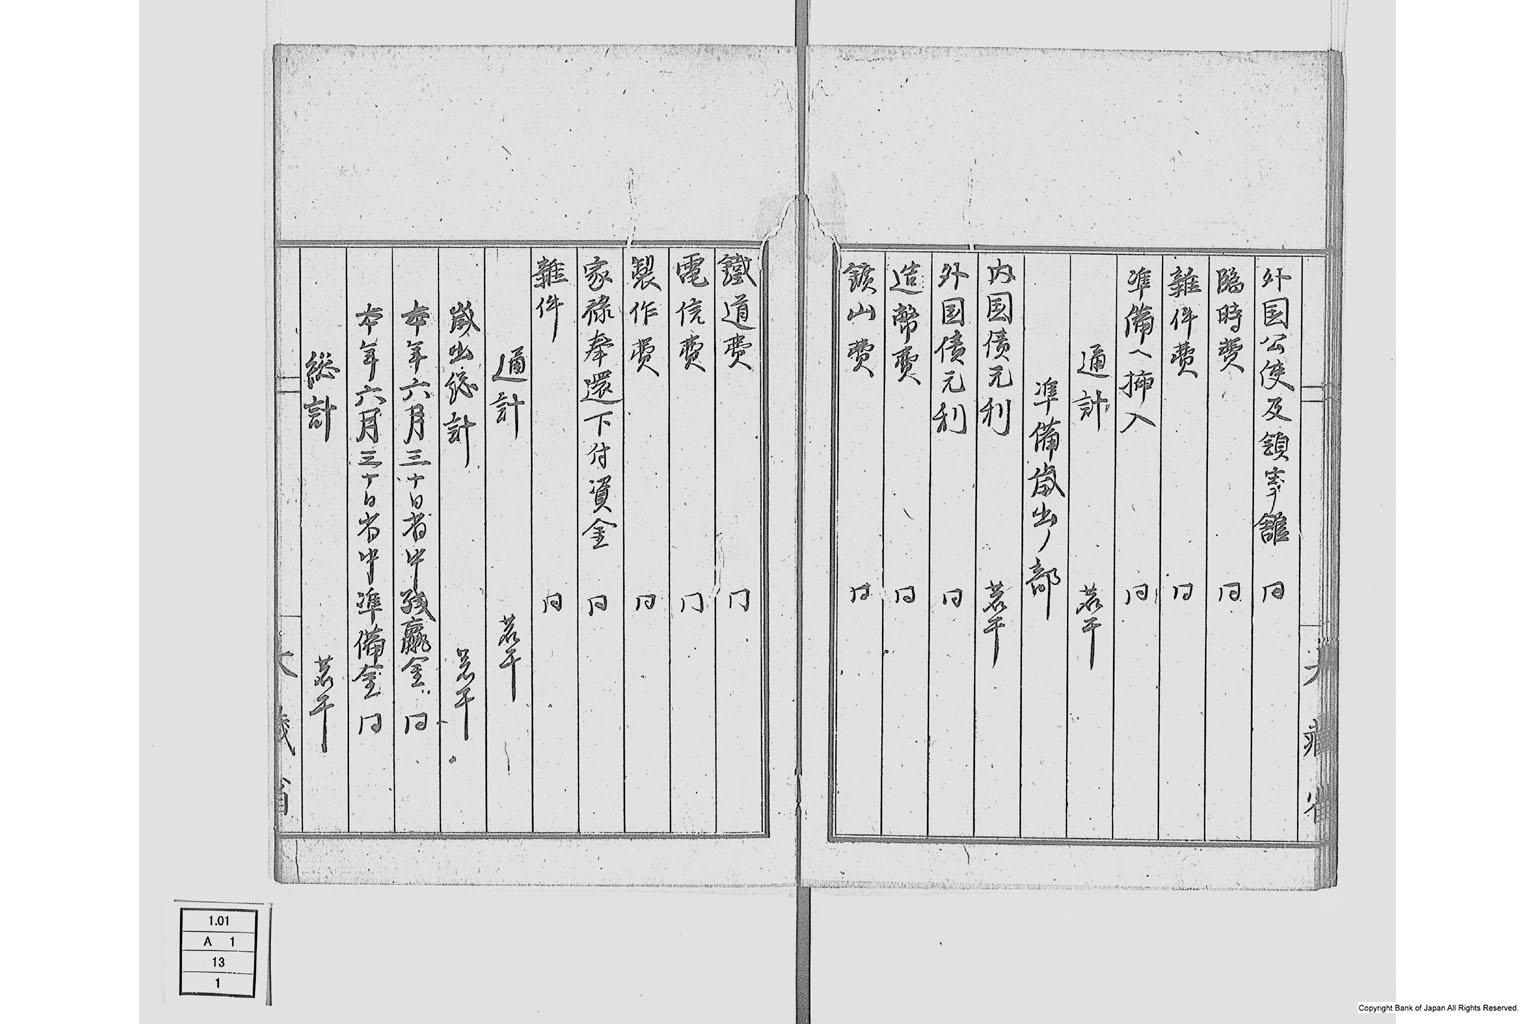 外国公使及領事館 同
臨時費 同
雑件費 同
準備ヘ挿入 同
通計 若干
準備歳出ノ部
内国債元利 若干
外国債元利 同
造幣費 同
鑛山費 同
鐵道費 同
電信費 同
製作費 同
家禄奉還下付資金 同
雑件 同
通計 若干
歳出総計 若干
本年六月三十日省中残贏金 同
本年六月三十日省中準備金 同
総計 若干
大藏省
大藏省
1.01
A 1
13
1
Copyright Bank of Japan All Rights Reserved.